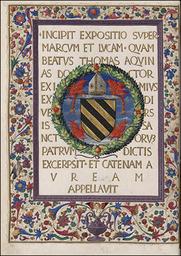 INCIPIT EXPOSITIO SVPER
MARCVM ET LVCAM · QVAM
BEATVS THOMAS AQVIN
AS DO CTOR
EX I MIVS
EX
DI
IS
SA
NCT ORV
PATRVM DICTIS
EXCERPSIT · ET CATENAM A
V REAM
APPELLAVIT